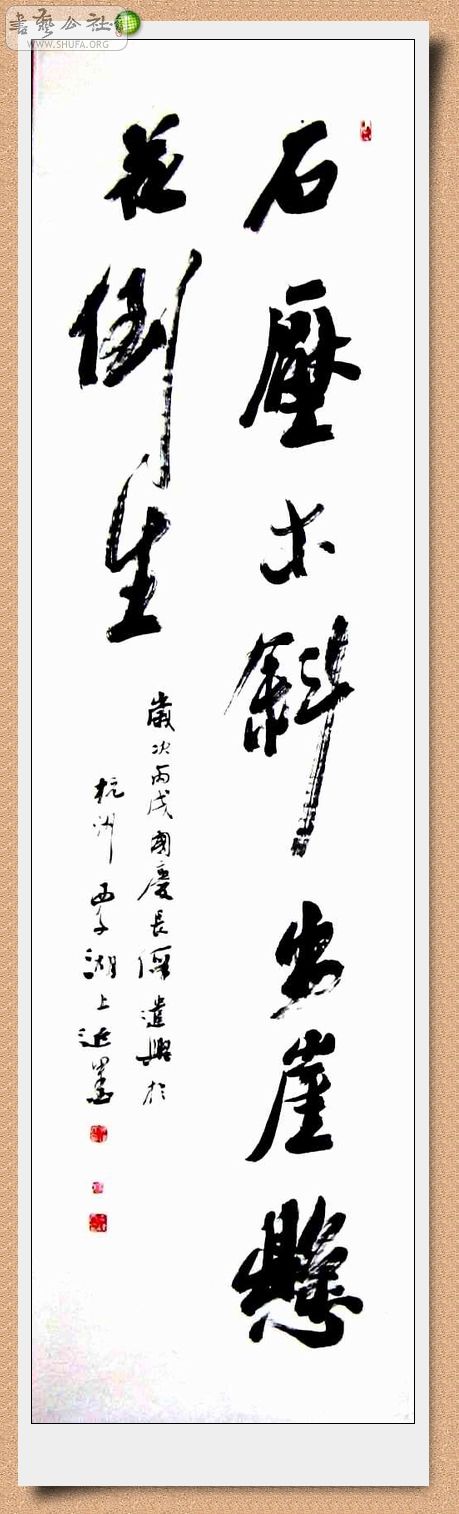 書藝公社
WWW.SHUFA.ORG
石壓木斜出崖懸
花倒生
歲次丙戌國慶長假遣興於
杭州西子湖上